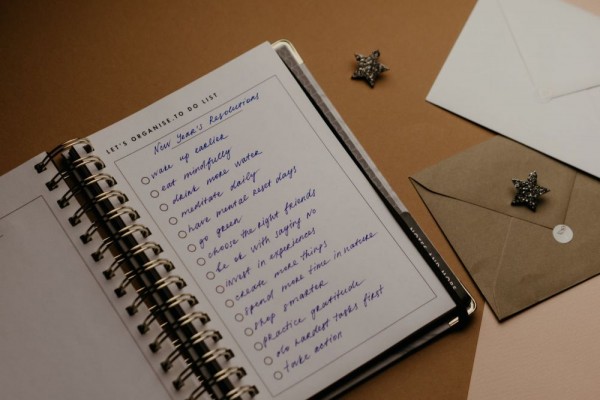 LET'S ORGANISE. TO DO LIST
New Year's Resolutions
wake up earlier
eat mindfully
drink more water
meditate daily
have mental reset days
go green
choose the right friends
be ok with saying no
invest in experiences
create more things
spend more time in nature
shop smarter
practice gratitude
do hardest tasks first
take action